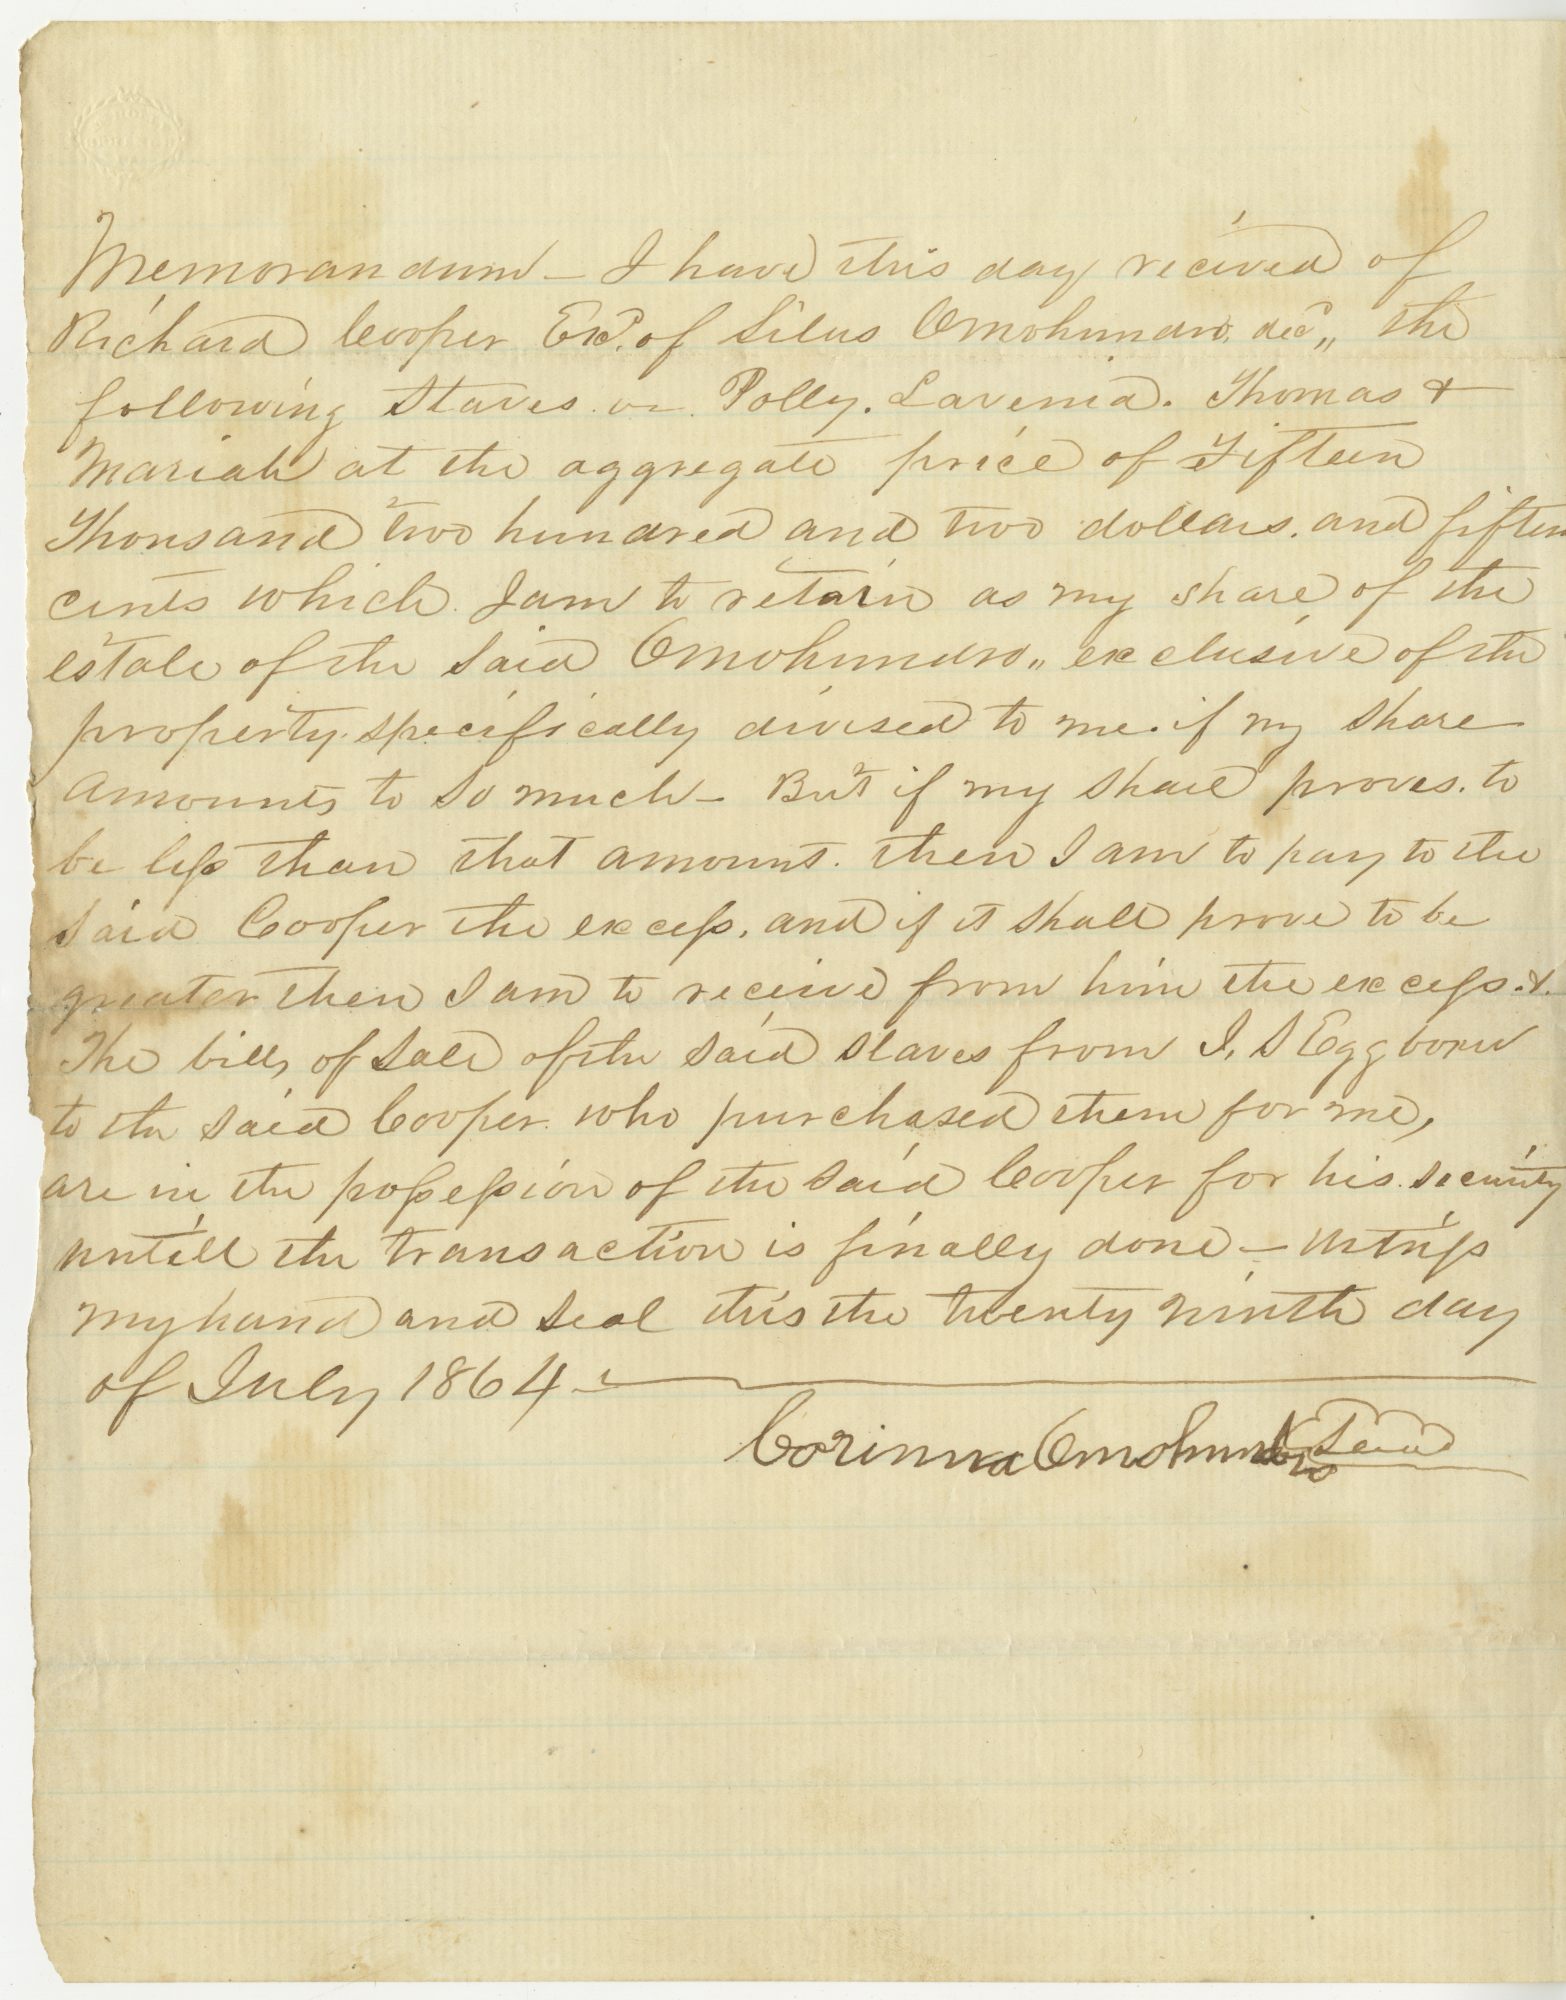 Memorandum — I have this day recived of
Richard Cooper Exr. of Silus Omohundro, decd„ the
following Slaves viz. Polly. Lavenia. Thomas &
Mariah at the aggregate price of Fifteen
Thousand two hundred and two dollars. and fifteen
cents which I am to retain as my share of the
estate of the said Omohundro„ exclusive of the
property specifically divised to me. if my share
amounts to so much — But if my share proves. to
be less than that amount. then I am to pay to the
said Cooper the excess, and if it shall prove to be
greater then I am to receive from him the excess. &.
The bills of sale of the said slaves from J. S Eggborn
to the said Cooper who purchased them for me,
are in the possession of the said Cooper for his security
untill the transaction is finally done — Witness
my hand and seal this the twenty ninth day
of July 1864 —
Corinna Omohundro Seal